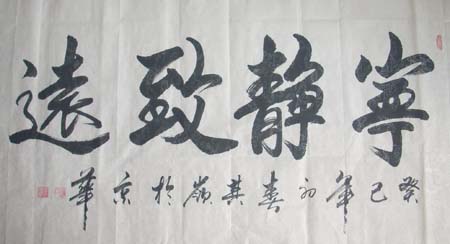 寧靜致遠
癸巳年初春其嶺於京華